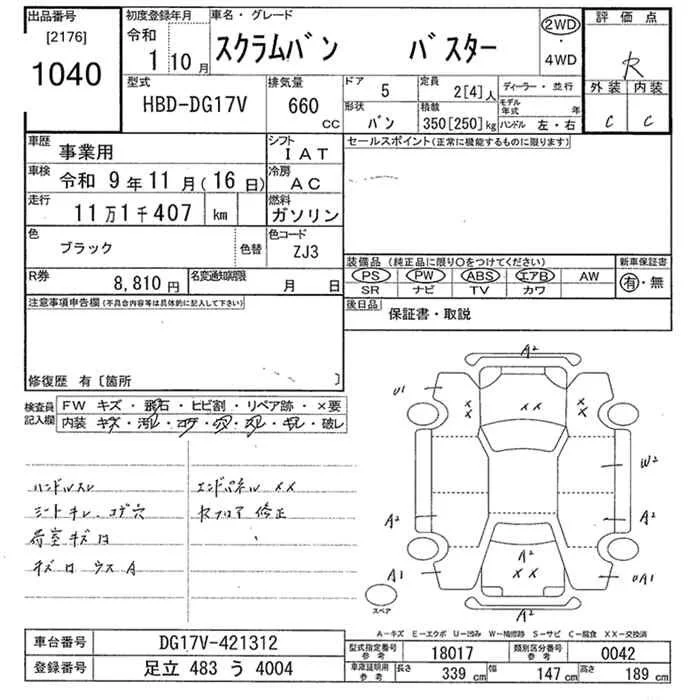 出品番号 初度登録年月 車名・グレード 評価点
[2176] 令和 1 10月 スクラムバン バスター 2WD・4WD R
1040
型式 排気量 ドア 5 定員 2[4]人 ディーラー・並行 外装 内装
HBD-DG17V 660 CC 形状 バン 積載 350[250]kg モデル年式 年 ハンドル 左・右 C C
車歴 事業用 シフト IAT セールスポイント(正常に機能するものに限ります)
車検 令和 9年11月(16日) 冷房 AC
走行 11万1千407 km 燃料 ガソリン
色 ブラック 色替 色コード ZJ3
装備品 (純正品に限り○をつけてください) 新車保証書
R券 8,810円 名変通知期限 月 日 PS PW ABS エアB AW 有・無
SR ナビ TV カワ
注意事項申告欄(不具合内容等は具体的に記入して下さい) 後日品 保証書・取説
修復歴 有〔箇所 〕
検査員記入欄 FW キズ・飛石・ヒビ割・リペア跡・×要
内装 キズ・汚レ・コゲ・穴・スレ・キレ・破レ
ハンドルスレ エンドパネル XX
シートキレ、コゲ穴 Rフロア 修正
荷室キズ
A2
U1
XX
XX
XX
W2
A2
A2
A2
XX
A1
UA1
スペア
A2
A-キズ E-エクボ U-凹み W-補修跡 S-サビ C-腐食 XX-交換済
車台番号 DG17V-421312 型式指定番号 参考 18017 類別区分番号 参考 0042
登録番号 足立 483 う 4004 車庫証明用 参考 長さ 339 cm 幅 147 cm 高さ 189 cm